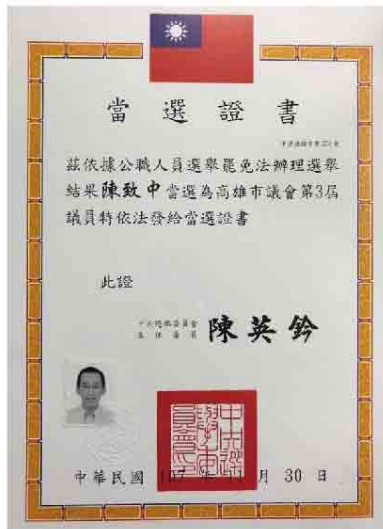 當選證書
茲依據公職人員選舉罷免法辦理選舉
結果陳致中當選為高雄市議會第3屆
議員特依法發給當選證書
此證
中央選舉委員會
主任委員 陳英鈐
中央選舉委員會
中華民國 107 年 11 月 30 日